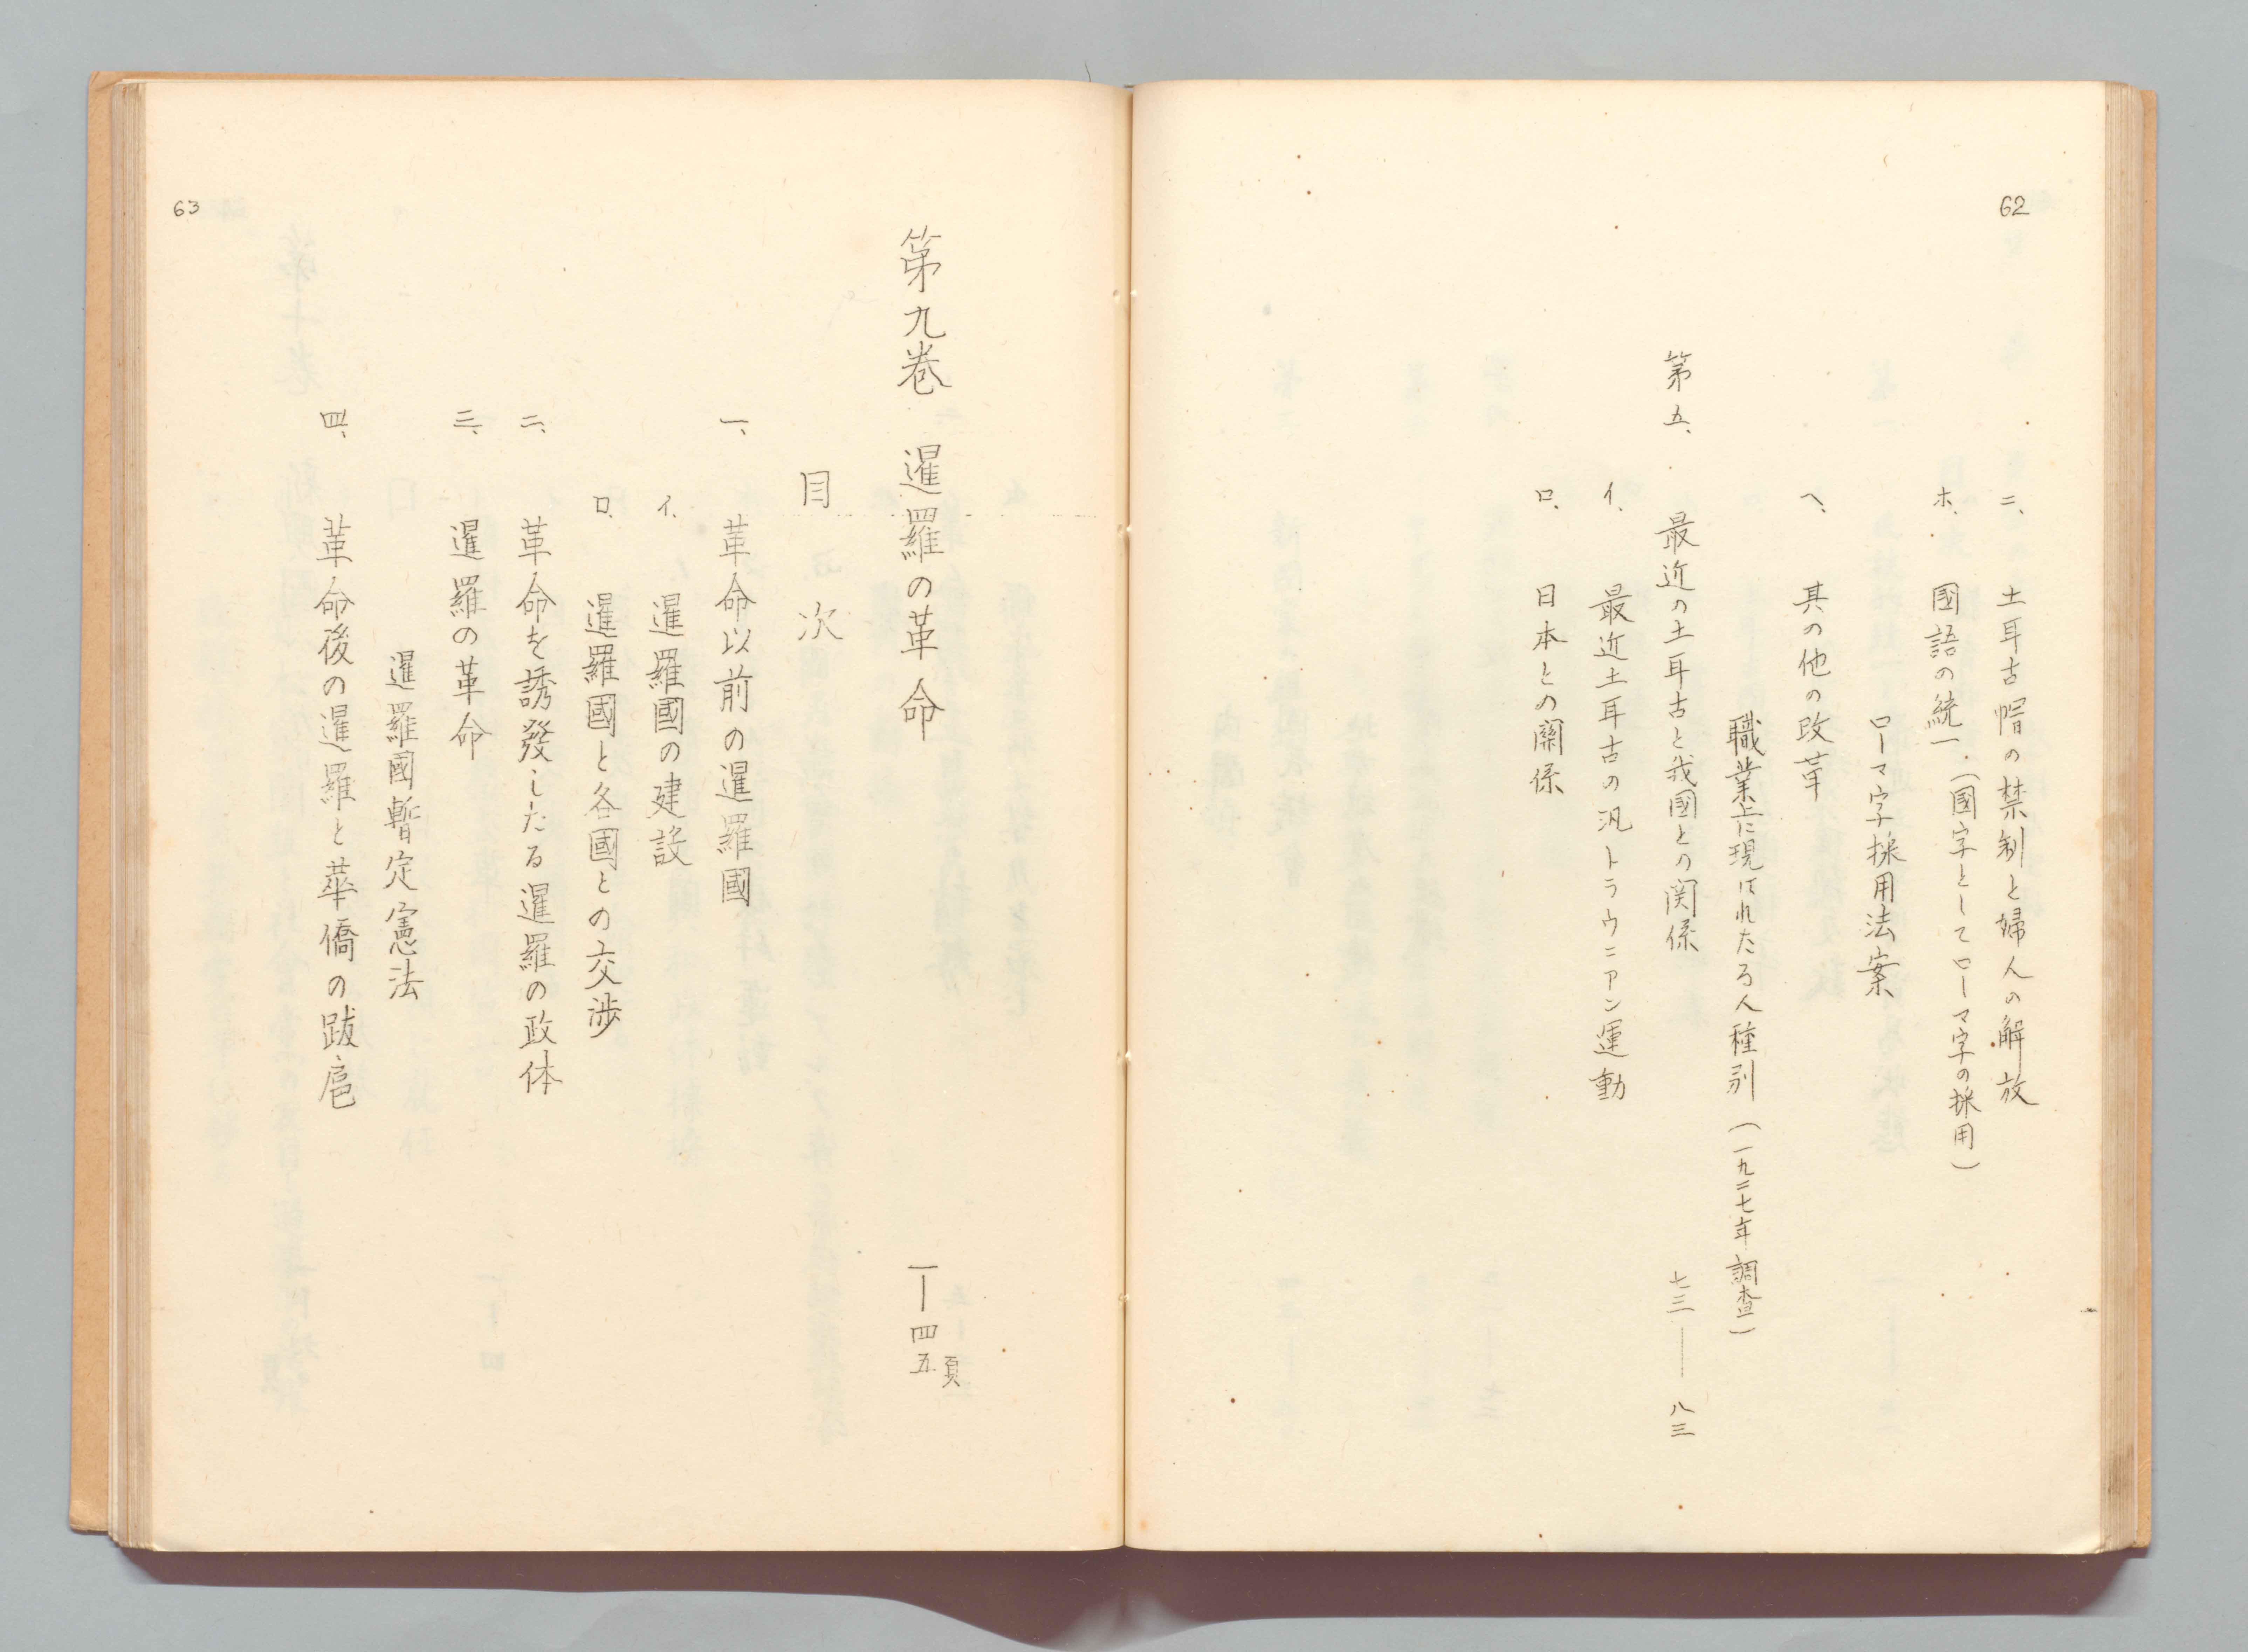 62
ニ、土耳古帽の禁制と婦人の解放
ホ、國語の統一（國字としてローマ字の採用）
ローマ字採用法案
ヘ、其の他の改革
職業上に現はれたる人種別（一九二七年調査）
第五、最近の土耳古と我國との関係 七三―八三
イ、最近土耳古の汎トラウニアン運動
ロ、日本との関係
63
第九卷 暹羅の革命 一―四五頁
目次
一、革命以前の暹羅國
イ、暹羅國の建設
ロ、暹羅國と各國との交渉
二、革命を誘發したる暹羅の政体
三、暹羅の革命
暹羅國暫定憲法
四、革命後の暹羅と華僑の跋扈